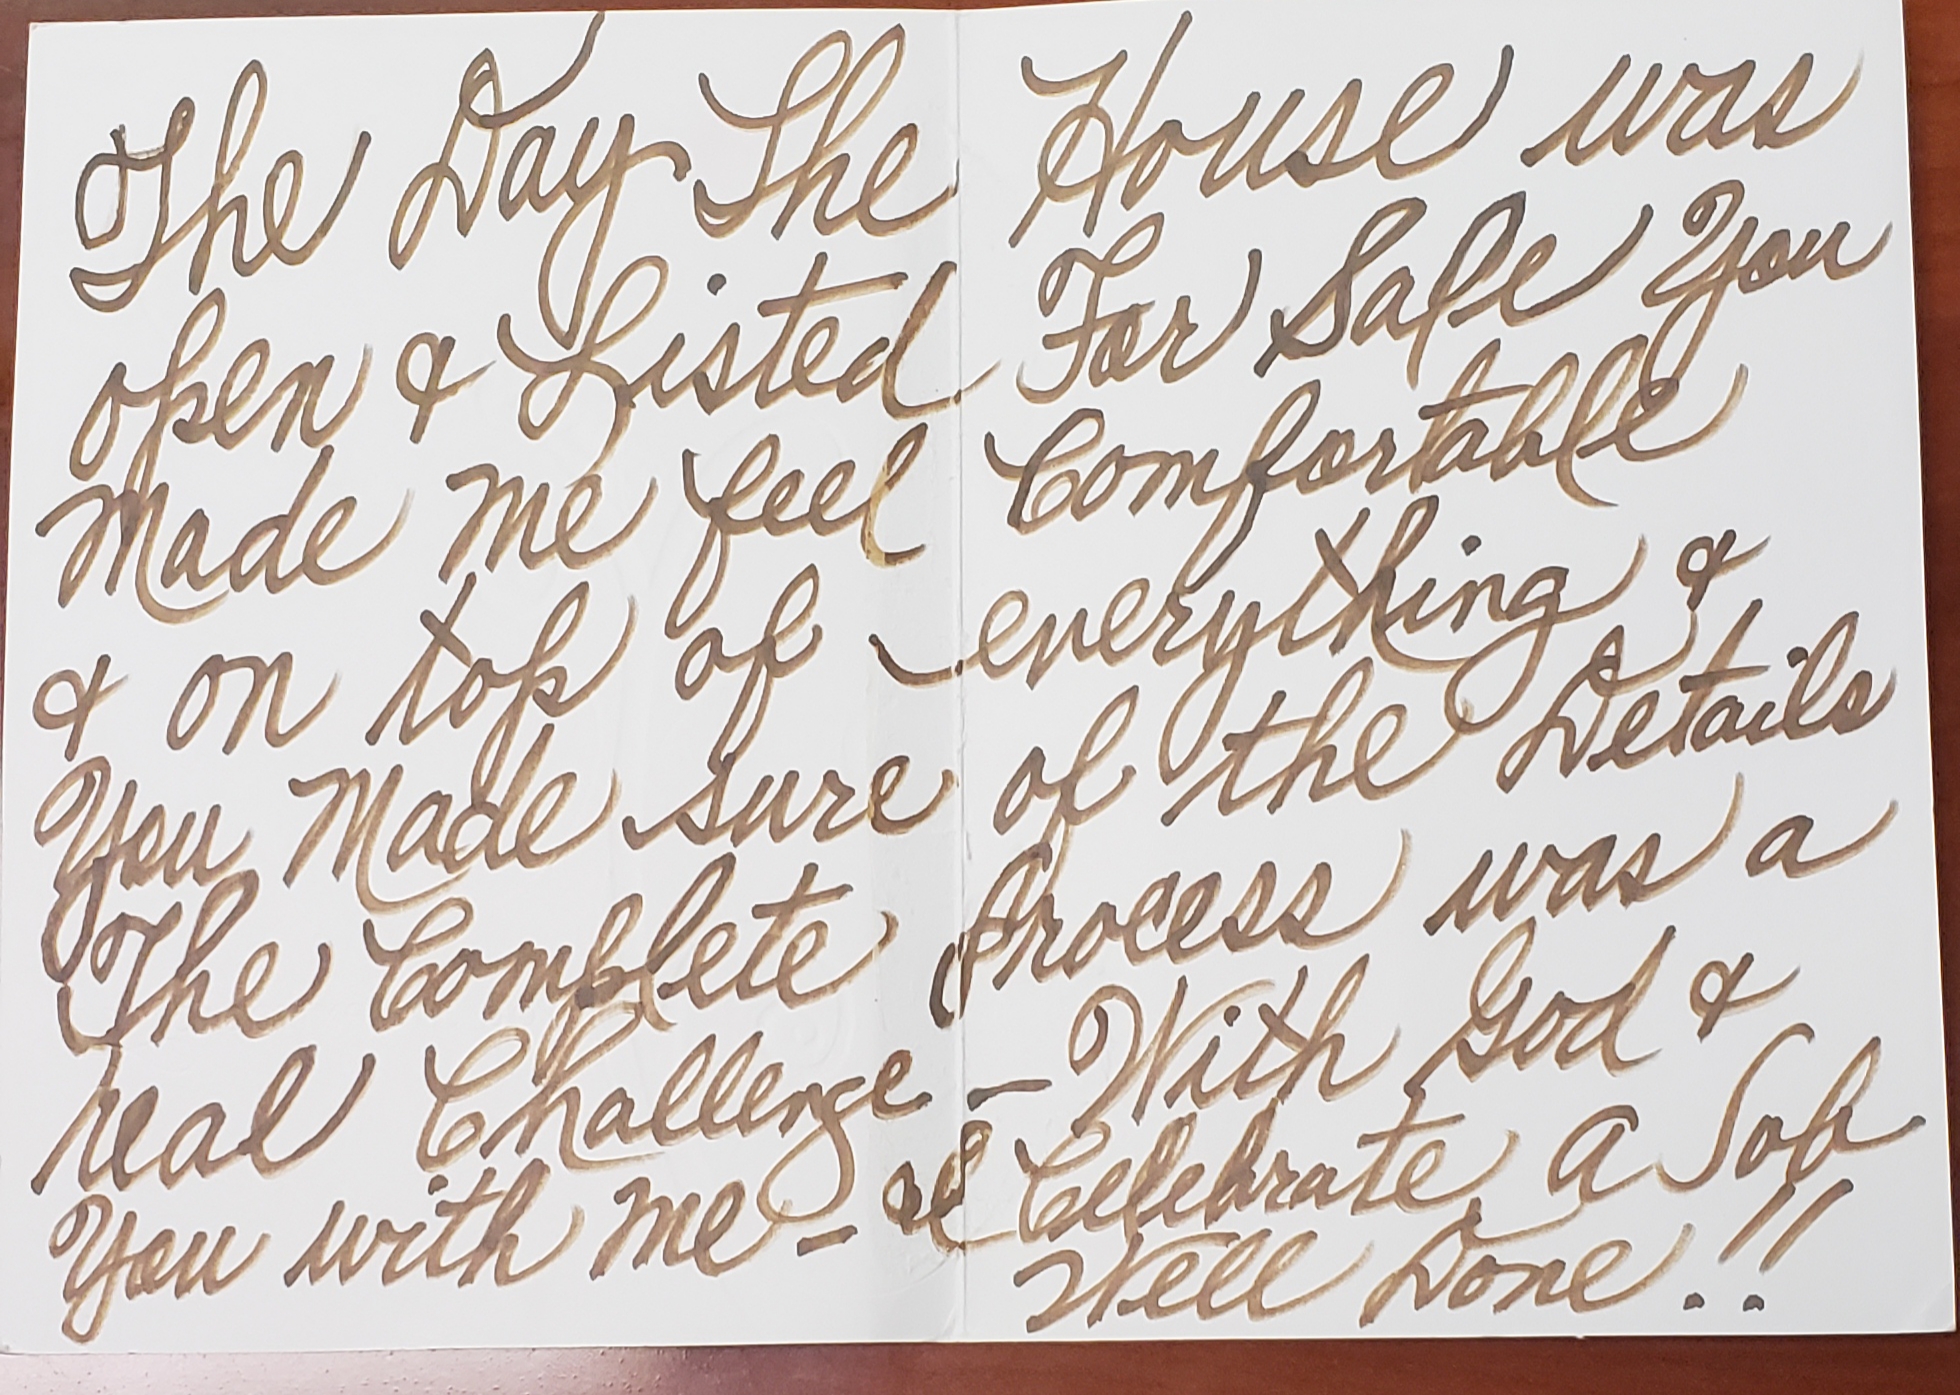 The Day The House was
open & Listed For Sale You
Made Me feel Comfortable
& on top of everything &
You Made sure of the Details
The Complete Process was a
real Challenge – With God &
You with Me – I Celebrate A Job
Well Done!!